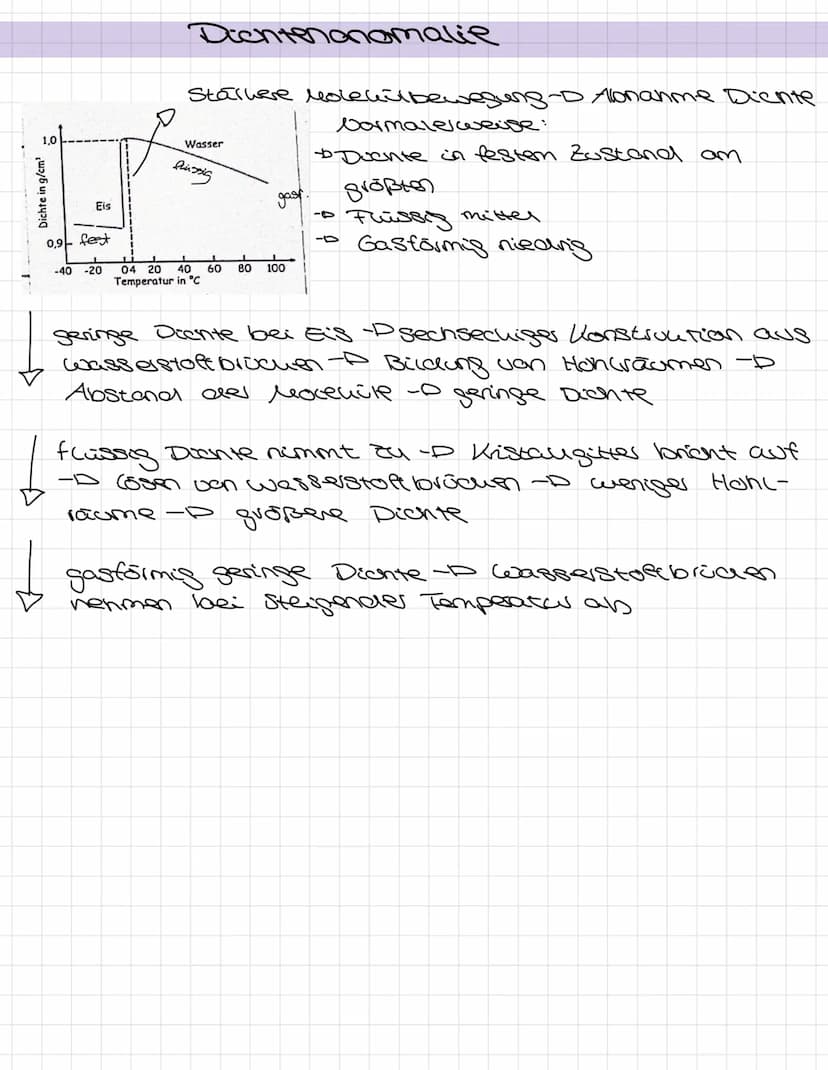 Dichtenanomalie
Stärkere Molekülbewegung → Abnahme Dichte
Normalerweise:
→ Dichte in festen Zustand am
größten
→ Flüssig mittel
→ Gasförmig niedrig
Dichte in g/cm³
1,0
0,9
Wasser
flüssig
gasf.
Eis
fest
-40 -20 0 4 20 40 60 80 100
Temperatur in °C
geringe Dichte bei Eis → sechseckiges Konstruktion aus
Wasserstoffbrücken → Bildung von Hohlräumen →
Abstand der Moleküle → geringe Dichte
flüssig Dichte nimmt zu → Kristallgitter bricht auf
→ Lösen von Wasserstoffbrücken → weniger Hohl-
räume → größere Dichte
gasförmig geringe Dichte → Wasserstoffbrücken
nehmen bei steigender Temperatur ab